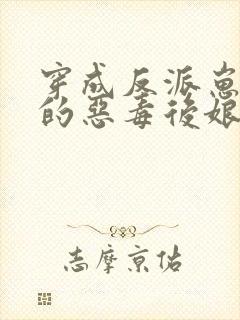 穿成反派崽
的惡毒後娘
志摩京佑